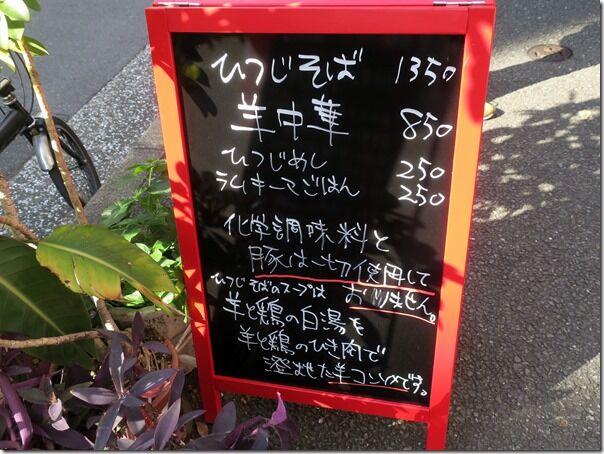 ひつじそば 1350
羊中華 850
ひつじめし 250
ラムキーマごはん 250
化学調味料と
豚は一切使用して
おりません。
ひつじそばのスープは
羊と鶏の白湯を
羊と鶏のひき肉で
澄ませた羊コンソメです。